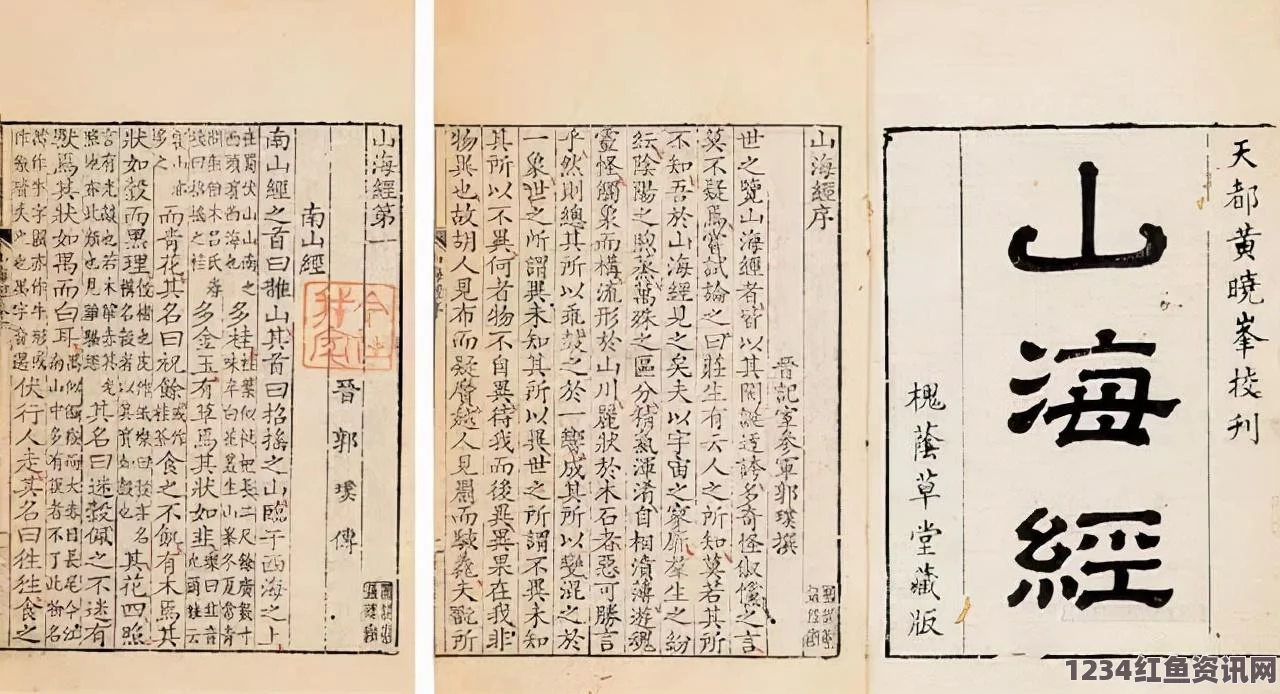 天都黄曉峯挍刊
山海經
槐蔭草堂藏版
山海經序
晉記室參軍郭璞撰
世之覽山海經者皆以其閎誕迂誇多奇怪俶儻之言
莫不疑焉嘗試論之曰莊生有云人之所知莫若其所
不知吾於山海經見之矣夫以宇宙之寥廓羣生之紛
紜陰陽之煦蒸萬殊之區分精氣渾淆自相濆薄遊魂
靈怪觸象而構流形於山川麗狀於木石者惡可勝言
乎然則總其所以乖鼓之於一響成其所以變混之於
一象世之所謂異未知其所以異世之所謂不異未知
其所以不異何者物不自異待我而後異異果在我非
物異也故胡人見布而疑黂越人見罽而駭毳夫翫所
山海經第一
晉郭璞傳
南山經
南山經之首曰䧿山其首曰招搖之山臨于西海之上
在蜀伏山山南之西頭濱西海也多桂桂葉似枇杷長二尺餘廣數寸味辛白花叢生山峯冬夏常青
多金玉有草焉其狀如韭璨曰韭音九爾雅云
霍山亦多之而青花其名曰祝餘或作桂荼食之不飢有木焉其
狀如榖而黑理其花四照
其名曰迷榖佩之不迷有
獸焉其狀如禺而白耳
伏行人走其名曰狌狌食之
1234红鱼资讯网